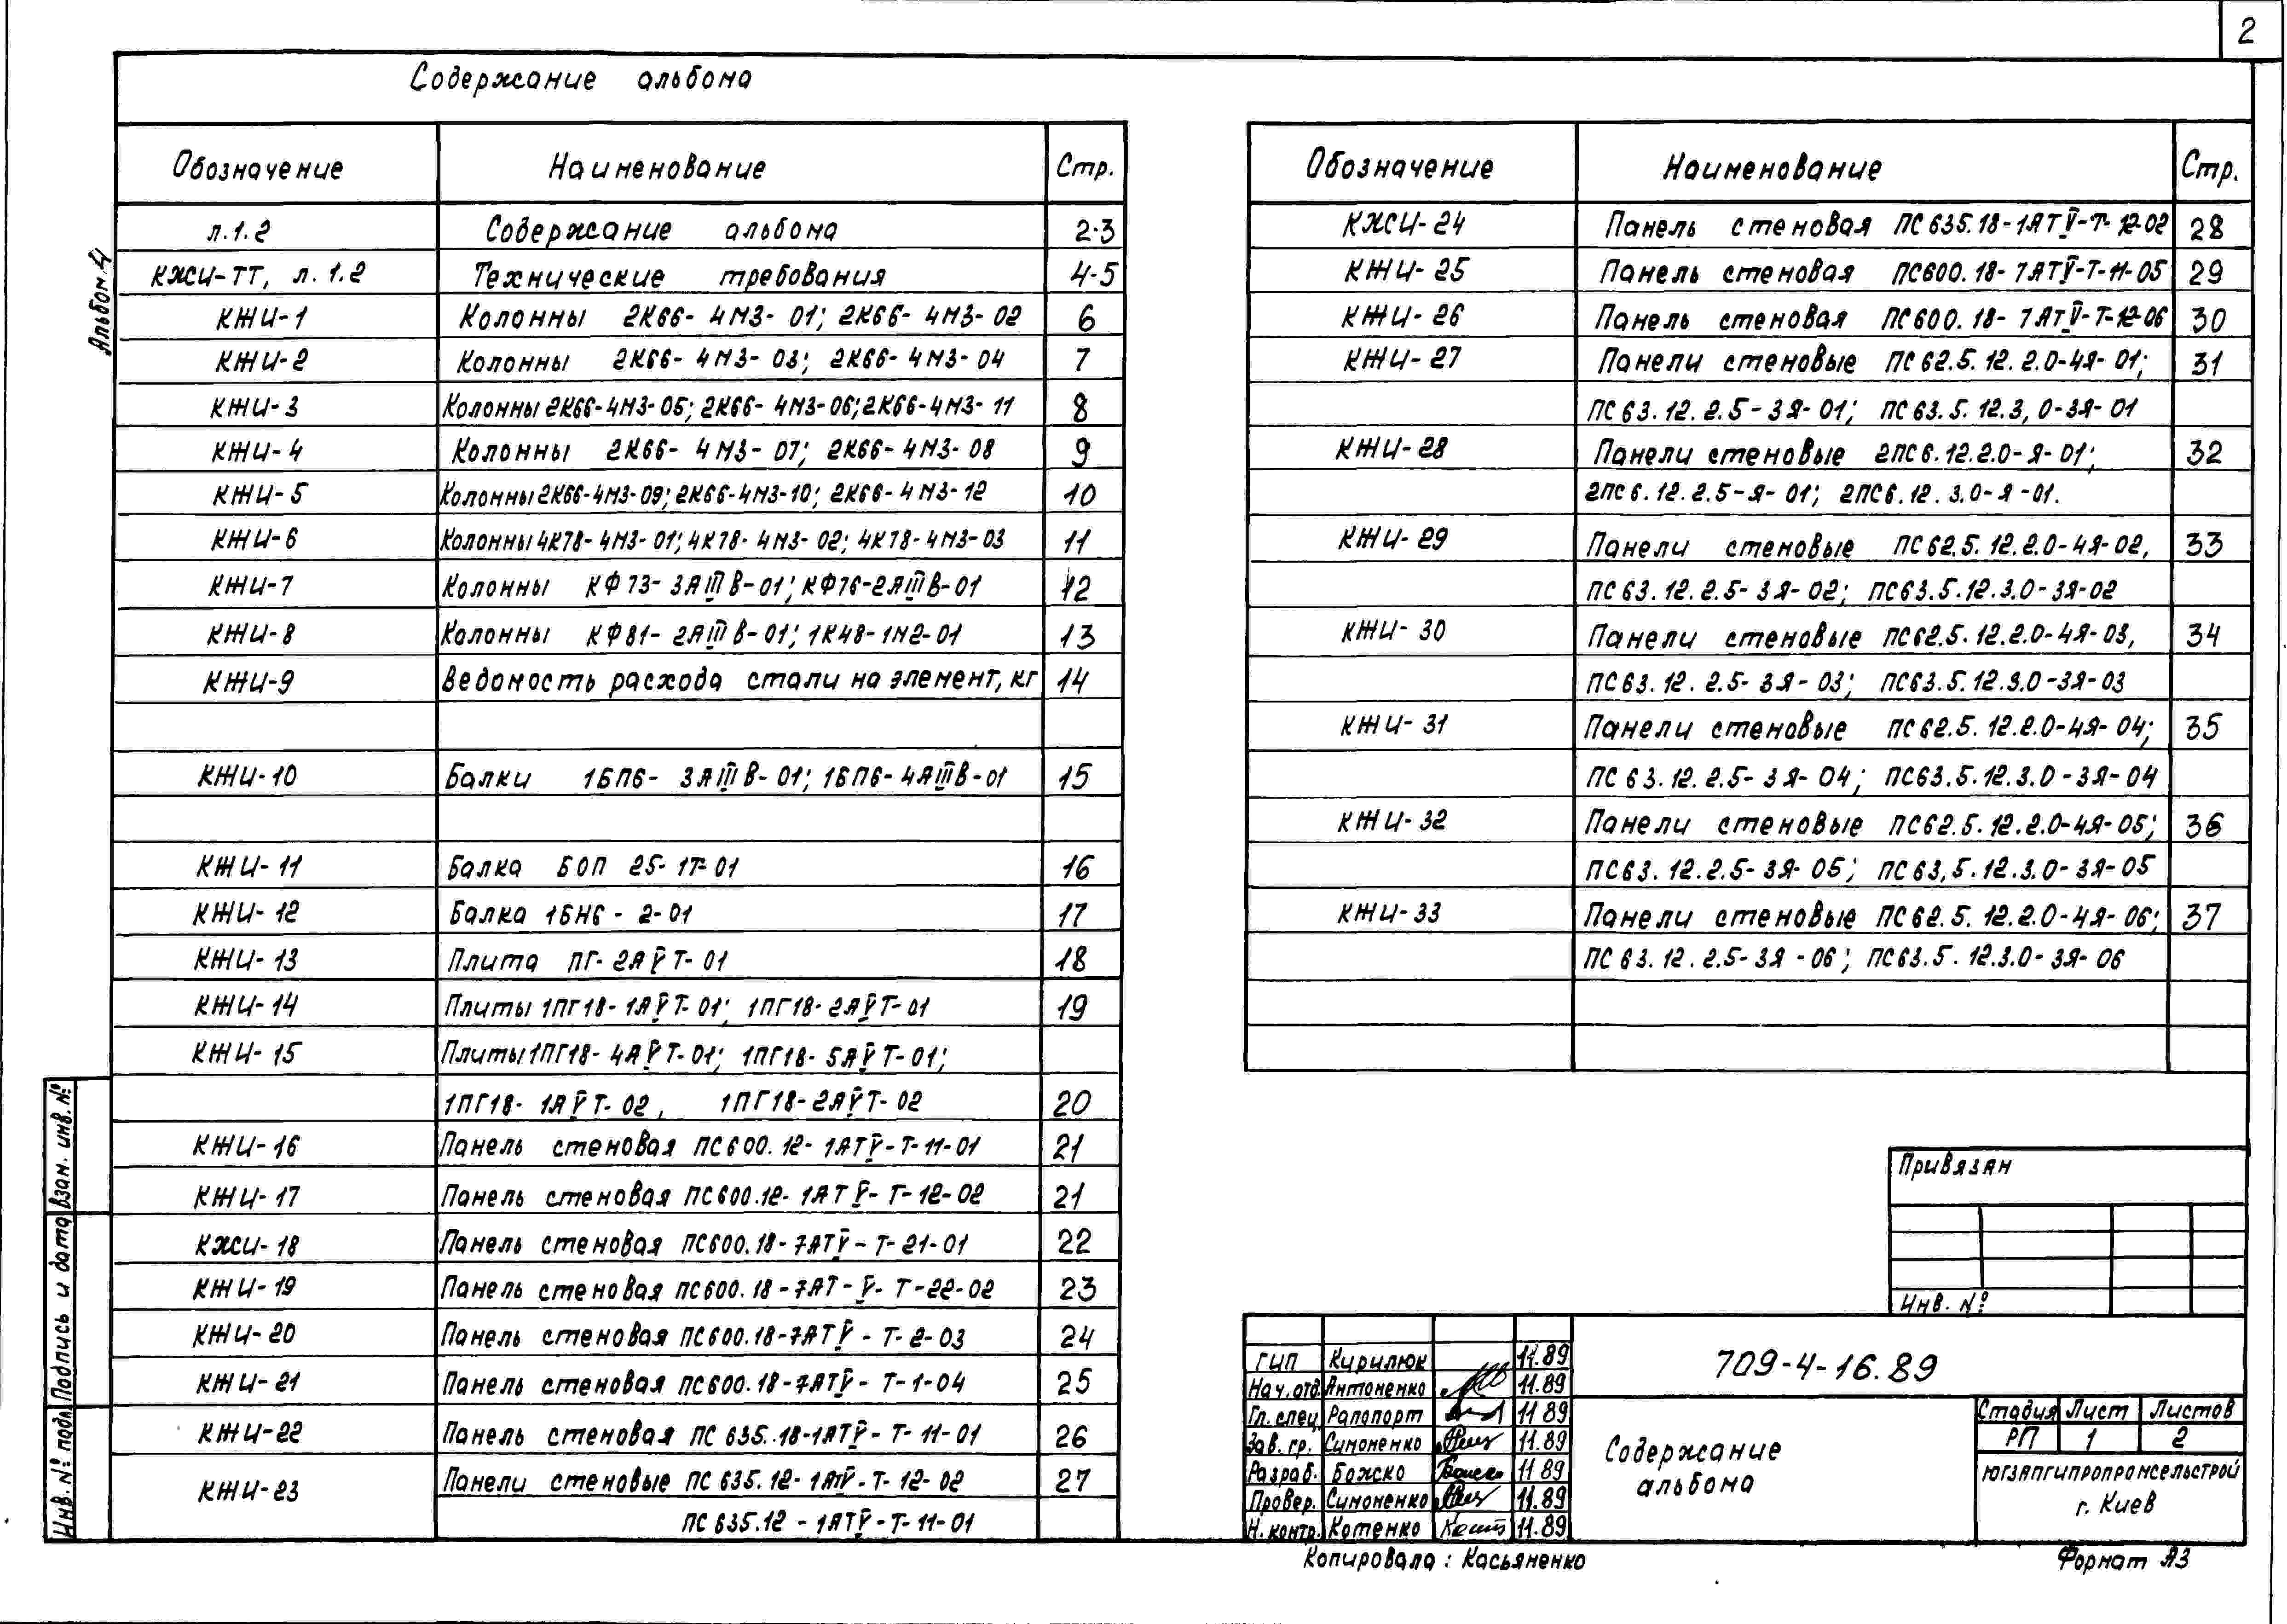 2
Содержание альбома
Альбом 4
Обозначение Наименование Стр.
л.1.2 Содержание альбома 2-3
КЖИ-ТТ, л. 1.2 Технические требования 4-5
КЖИ-1 Колонны 2К66-4М3-01; 2К66-4М3-02 6
КЖИ-2 Колонны 2К66-4М3-03; 2К66-4М3-04 7
КЖИ-3 Колонны 2К66-4М3-05; 2К66-4М3-06; 2К66-4М3-11 8
КЖИ-4 Колонны 2К66-4М3-07; 2К66-4М3-08 9
КЖИ-5 Колонны 2К66-4М3-09; 2К66-4М3-10; 2К66-4М3-12 10
КЖИ-6 Колонны 4К78-4М3-01; 4К78-4М3-02; 4К78-4М3-03 11
КЖИ-7 Колонны КФ73-3АIIIВ-01; КФ76-2АIIIВ-01 12
КЖИ-8 Колонны КФ81-2АIIIВ-01; 1К48-1М2-01 13
КЖИ-9 Ведомость расхода стали на элемент, кг 14
КЖИ-10 Балки 1БП6-3АIIIВ-01; 1БП6-4АIIIВ-01 15
КЖИ-11 Балка БОП 25-1Т-01 16
КЖИ-12 Балка 1БН6-2-01 17
КЖИ-13 Плита ПГ-2АVТ-01 18
КЖИ-14 Плиты 1ПГ18-1АVТ-01; 1ПГ18-2АVТ-01 19
КЖИ-15 Плиты 1ПГ18-4АVТ-01; 1ПГ18-5АVТ-01;
1ПГ18-1АVТ-02, 1ПГ18-2АVТ-02 20
КЖИ-16 Панель стеновая ПС600.12-1АТV-Т-11-01 21
КЖИ-17 Панель стеновая ПС600.12-1АТV-Т-12-02 21
КЖИ-18 Панель стеновая ПС600.18-7АТV-Т-21-01 22
КЖИ-19 Панель стеновая ПС600.18-7АТ-V-Т-22-02 23
КЖИ-20 Панель стеновая ПС600.18-7АТV-Т-2-03 24
КЖИ-21 Панель стеновая ПС600.18-7АТV-Т-1-04 25
КЖИ-22 Панель стеновая ПС 635.18-1АТV-Т-11-01 26
КЖИ-23 Панели стеновые ПС 635.12-1АТV-Т-12-02 27
ПС 635.12-1АТV-Т-11-01
Обозначение Наименование Стр.
КЖИ-24 Панель стеновая ПС 635.18-1АТV-Т-12-02 28
КЖИ-25 Панель стеновая ПС600.18-7АТV-Т-11-05 29
КЖИ-26 Панель стеновая ПС600.18-7АТV-Т-12-06 30
КЖИ-27 Панели стеновые ПС 62.5.12.2.0-4Я-01; 31
ПС 63.12.2.5-3Я-01; ПС 63.5.12.3,0-3Я-01
КЖИ-28 Панели стеновые 2ПС6.12.2.0-Я-01; 32
2ПС 6.12.2.5-Я-01; 2ПС6.12.3.0-Я-01.
КЖИ-29 Панели стеновые ПС62.5.12.2.0-4Я-02, 33
ПС 63.12.2.5-3Я-02; ПС63.5.12.3.0-3Я-02
КЖИ-30 Панели стеновые ПС62.5.12.2.0-4Я-03, 34
ПС63.12.2.5-3Я-03; ПС63.5.12.3.0-3Я-03
КЖИ-31 Панели стеновые ПС62.5.12.2.0-4Я-04; 35
ПС 63.12.2.5-3Я-04; ПС63.5.12.3.0-3Я-04
КЖИ-32 Панели стеновые ПС62.5.12.2.0-4Я-05; 36
ПС63.12.2.5-3Я-05; ПС63,5.12.3.0-3Я-05
КЖИ-33 Панели стеновые ПС62.5.12.2.0-4Я-06; 37
ПС 63.12.2.5-3Я-06; ПС63.5.12.3.0-3Я-06
Привязан
Инв. №
Взан. инв. №
Подпись и дата
Инв. № падл.
ГИП Кирилюк 11.89
Нач.отд. Антоненко 11.89
Гл.спец. Рапопорт 11 89
Зав. гр. Симоненко 11.89
Разраб. Божско Божско 11 89
Провер. Симоненко 11.89
Н. контр. Котенко 11.89
709-4-16.89
Содержание
альбома
Стадия Лист Листов
РП 1 2
ЮГЗАПГИПРОПРОМСЕЛЬСТРОЙ
г. Киев
Копировала: Касьяненко
Формат А3